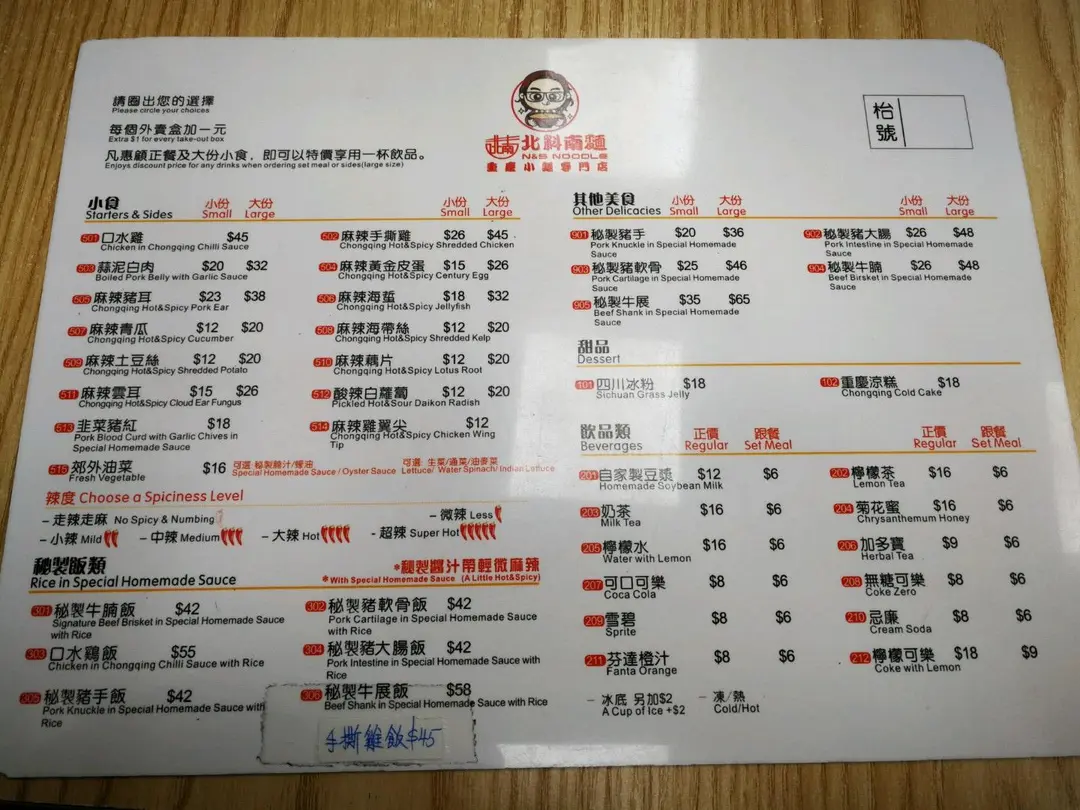 請圈出您的選擇
Please circle your choices
每個外賣盒加一元
Extra $1 for every take-out box
凡惠顧正餐及大份小食，即可以特價享用一杯飲品。
Enjoys discount price for any drinks when ordering set meal or sides(large size)
北斜南麵
N&S NOODLE
重慶小麵專門店
枱號
小食 小份 大份 小份 大份
Starters & Sides Small Large Small Large
501 口水雞 $45
Chicken in Chongqing Chilli Sauce
502 麻辣手撕雞 $26 $45
Chongqing Hot&Spicy Shredded Chicken
503 蒜泥白肉 $20 $32
Boiled Pork Belly with Garlic Sauce
504 麻辣黃金皮蛋 $15 $26
Chongqing Hot&Spicy Century Egg
505 麻辣豬耳 $23 $38
Chongqing Hot&Spicy Pork Ear
506 麻辣海蜇 $18 $32
Chongqing Hot&Spicy Jellyfish
507 麻辣青瓜 $12 $20
Chongqing Hot&Spicy Cucumber
508 麻辣海帶絲 $12 $20
Chongqing Hot&Spicy Shredded Kelp
509 麻辣土豆絲 $12 $20
Chongqing Hot&Spicy Shredded Potato
510 麻辣藕片 $12 $20
Chongqing Hot&Spicy Lotus Root
511 麻辣雲耳 $15 $26
Chongqing Hot&Spicy Cloud Ear Fungus
512 酸辣白蘿蔔 $12 $20
Pickled Hot&Sour Daikon Radish
513 韭菜豬紅 $18
Pork Blood Curd with Garlic Chives in
Special Homemade Sauce
514 麻辣雞翼尖 $12
Chongqing Hot&Spicy Chicken Wing
Tip
515 郊外油菜 $16 可選 秘製醬汁/蠔油 可選 生菜/通菜/油麥菜
Fresh Vegetable Special Homemade Sauce / Oyster Sauce Lettuce/ Water Spinach/ Indian Lettuce
辣度 Choose a Spiciness Level
– 走辣走麻 No Spicy & Numbing – 微辣 Less
– 小辣 Mild – 中辣 Medium – 大辣 Hot – 超辣 Super Hot
秘製飯類 *秘製醬汁帶輕微麻辣
Rice in Special Homemade Sauce *With Special Homemade Sauce (A Little Hot&Spicy)
301 秘製牛腩飯 $42
Signature Beef Brisket in Special Homemade Sauce
with Rice
302 秘製豬軟骨飯 $42
Pork Cartilage in Special Homemade Sauce
with Rice
303 口水鷄飯 $55
Chicken in Chongqing Chilli Sauce with Rice
304 秘製豬大腸飯 $42
Pork Intestine in Special Homemade Sauce with
Rice
305 秘製豬手飯 $42
Pork Knuckle in Special Homemade Sauce with
Rice
306 秘製牛展飯 $58
Beef Shank in Special Homemade Sauce with Rice
手撕雞飯$45
其他美食 小份 大份 小份 大份
Other Delicacies Small Large Small Large
901 秘製豬手 $20 $36
Pork Knuckle in Special Homemade
Sauce
902 秘製豬大腸 $26 $48
Pork Intestine in Special Homemade
Sauce
903 秘製豬軟骨 $25 $46
Pork Cartilage in Special Homemade
Sauce
904 秘製牛腩 $26 $48
Beef Birsket in Special Homemade
Sauce
905 秘製牛展 $35 $65
Beef Shank in Special Homemade
Sauce
甜品
Dessert
101 四川冰粉 $18
Sichuan Grass Jelly
102 重慶涼糕 $18
Chongqing Cold Cake
飲品類 正價 跟餐 正價 跟餐
Beverages Regular Set Meal Regular Set Meal
201 自家製豆漿 $12 $6
Homemade Soybean Milk
202 檸檬茶 $16 $6
Lemon Tea
203 奶茶 $16 $6
Milk Tea
204 菊花蜜 $16 $6
Chrysanthemum Honey
205 檸檬水 $16 $6
Water with Lemon
206 加多寶 $9 $6
Herbal Tea
207 可口可樂 $8 $6
Coca Cola
208 無糖可樂 $8 $6
Coke Zero
209 雪碧 $8 $6
Sprite
210 忌廉 $8 $6
Cream Soda
211 芬達橙汁 $8 $6
Fanta Orange
212 檸檬可樂 $18 $9
Coke with Lemon
– 冰底 另加$2 – 凍/熱
A Cup of Ice +$2 Cold/Hot